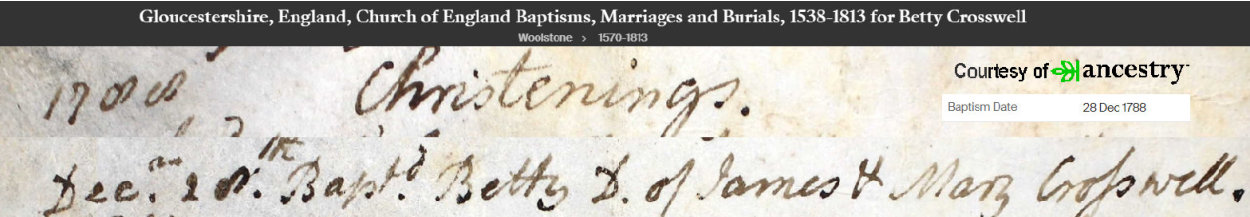 Gloucestershire, England, Church of England Baptisms, Marriages and Burials, 1538-1813 for Betty Crosswell
Woolstone > 1570-1813
Courtesy of ancestry
Baptism Date 28 Dec 1788
1788 Christenings.
Decr. 28th. Bapt'd Betty D. of James & Mary Croſswell.